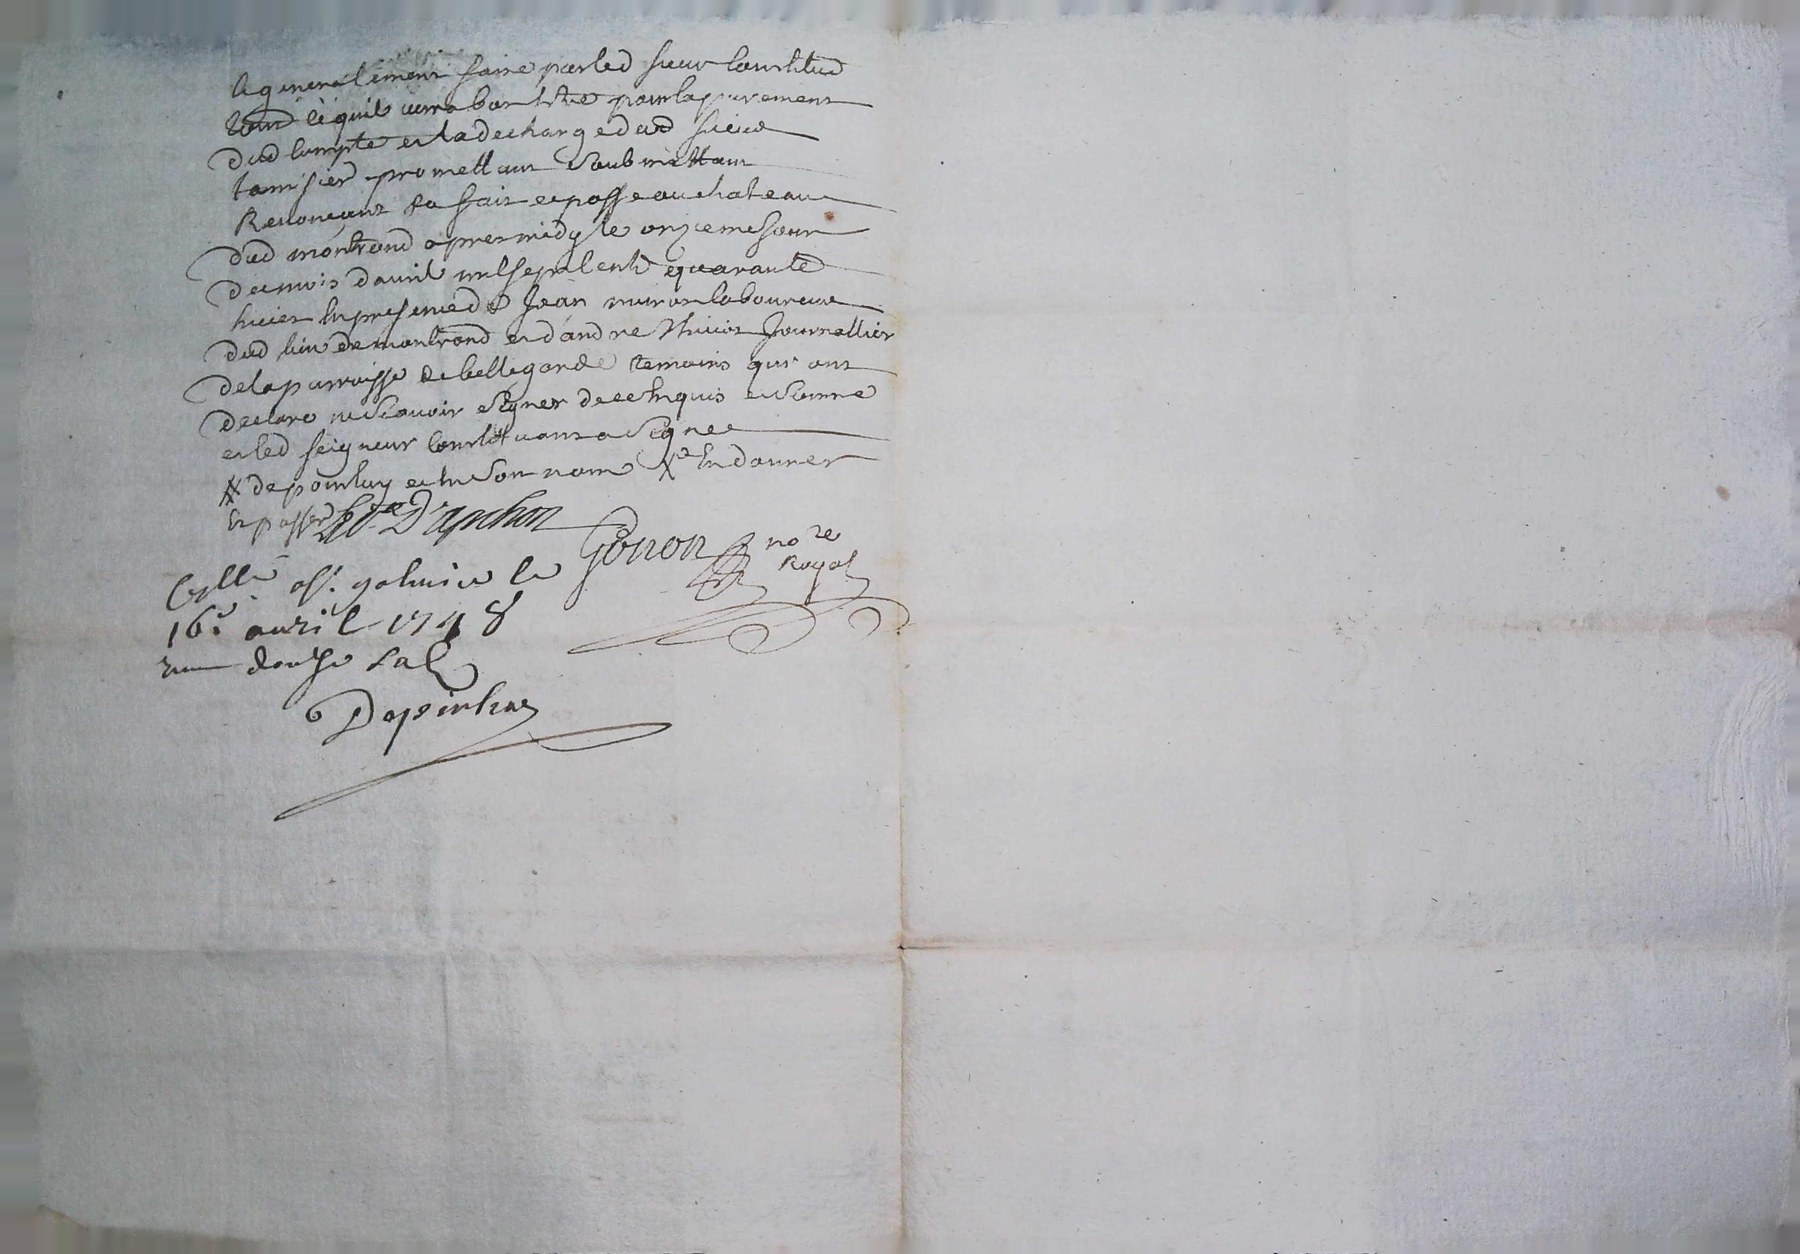 & generalement faire par led sieur constitué
tout ce quil verra bon estre pour lapurement
dud compte et la decharge dud sieur
tamisier promettant soubmettant
Renonçant &a fait et passé au chateau
dud montrond apres midy le onzieme jour
du mois davril mil sept cents quarante
huict En presence de Jean laboureur
dud lieu de montrond et dandre Journallier
de la parroisse de bellegarde temoins qui ont
declaré ne scavoir signer de ce Enquis et sommé
et led seigneur constituant a signé
# de pour luy et En son nom En donner
Et passer D'apchon
Gonon no.re
Royal
Coll.é a s.t galmier le
16.e avril 1748
reçu douze sols
Depinhac